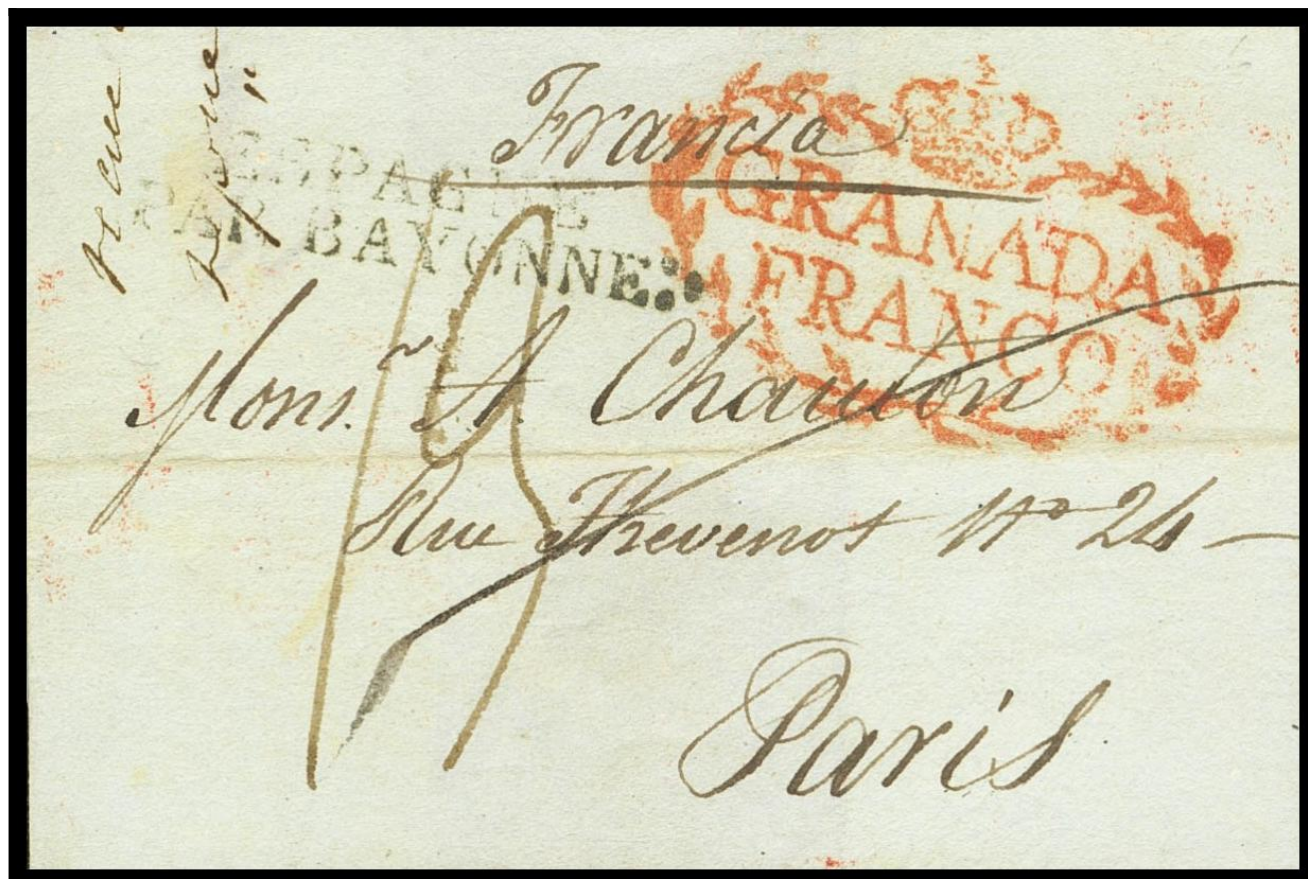 Francia
ESPAGNE
PAR BAYONNE
GRANADA
FRANCO
Monsr. A Chauton
Rue Thevenot No 24
Paris